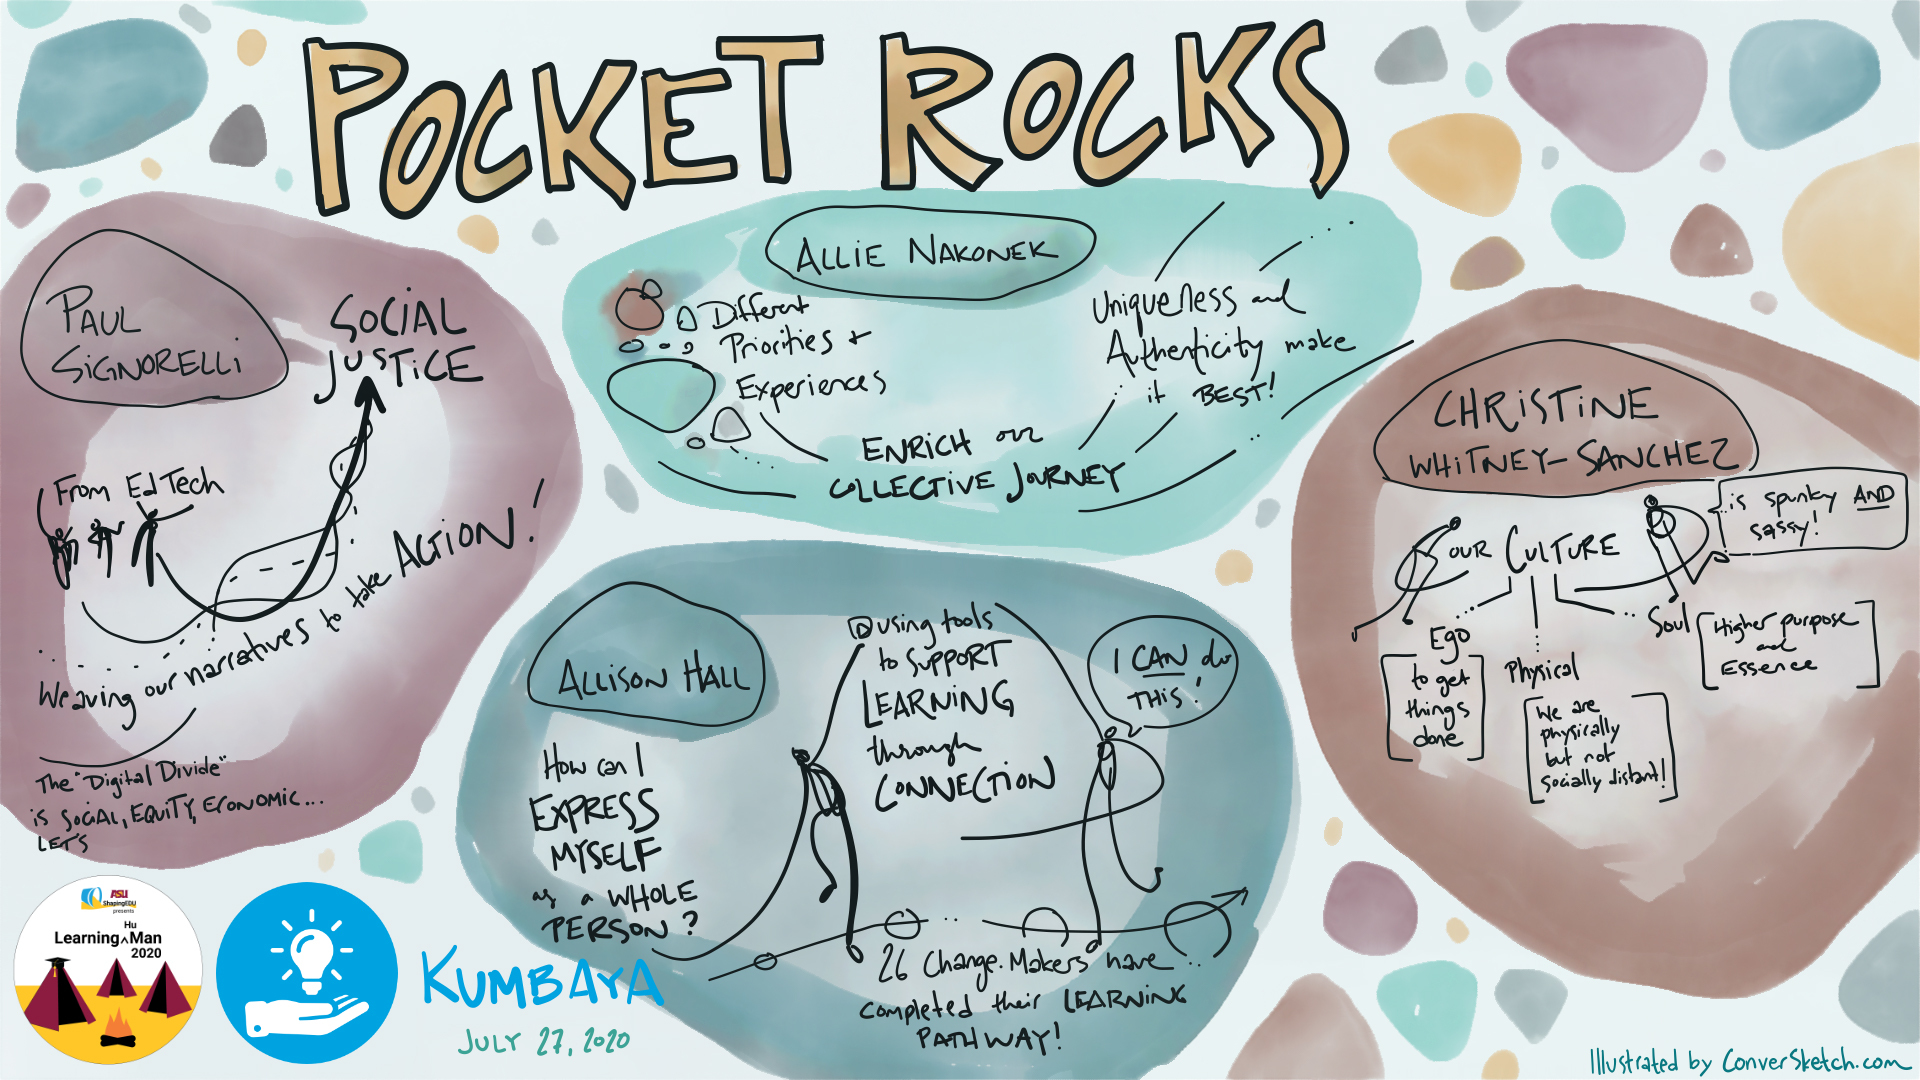 POCKET ROCKS
PAUL
SIGNORELLI
SOCIAL
JUSTICE
From EdTech
Weaving our narratives to take ACTION!
The "Digital Divide"
is SOCIAL, EQUITY, ECONOMIC...
LET'S
ALLIE NAKONEK
Different
Priorities +
Experiences
Uniqueness and
Authenticity make
it BEST!
ENRICH our
COLLECTIVE JOURNEY
ALLISON HALL
How can I
EXPRESS
MYSELF
as a WHOLE
PERSON?
using tools
to SUPPORT
LEARNING
through
CONNECTION
I CAN do
THIS!
26 Change-Makers have
completed their LEARNING
PATHWAY!
CHRISTINE
WHITNEY-SANCHEZ
OUR CULTURE
...is spunky AND
sassy!
Ego
to get
things
done
Physical
We are
physically
but not
socially distant!
Soul
Higher purpose
and
Essence
ASU
ShapingEDU
presents
Hu
Learning^Man
2020
KUMBAYA
JULY 27, 2020
Illustrated by ConverSketch.com